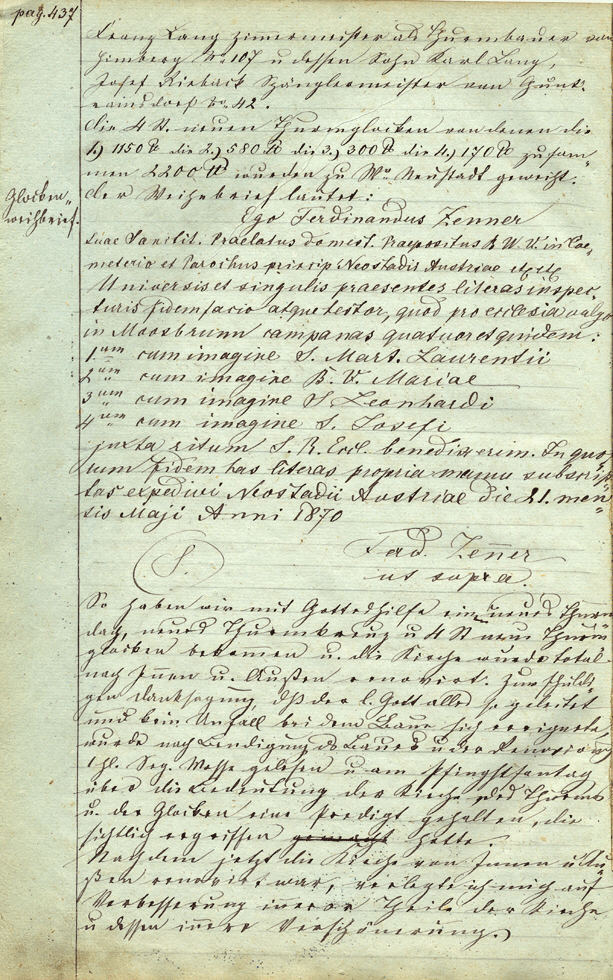 pag. 437
Franz Lang Zimmermeister als Thurmbauer von
Himberg No 107 u dessen Sohn Karl Lang,
Josef Rieback Spänglermeister von Gunt-
ramsdorf No. 42.
die 4 St. neuen Thurmglocken von denen die
1.) 1150 ℔ die 2.) 580 ℔ die 3.) 300 ℔ die 4.) 170 ℔ zusam-
men 2200 ℔ wurden zu Wr. Neustadt geweiht.
Glocken-
weihbrief.
der Weihebrief lautet:
Ego Ferdinandus Zenner
Suae Sanctit. Praelatus domest. Praepositus B. V. in Coe-
meterio et Parochus princip. Neostadii Austriae
Universis et singulis praesentes literas inspec-
turis fidem facio atque testor, quod pro ecclesia
in Moosbrunn campanas quatuor et quidem:
1am cum imagine S. Mart. Laurentii
2am cum imagine B. V. Mariae
3am cum imagine S Leonhardi
4am cum imagine S. Josefi
juxta ritum S. R. Eccl. benedixerim. In quo-
rum fidem has literas propria manu subscrip-
tas expedivi Neostadii Austriae die 21. men-
sis Maji Anni 1870
S.
Ferd. Zenner
ut supra.
So haben wir mit Gotteshilfe ein neues Thurm
dach, neues Thurmkreuz u 4 St neue Thurm
glocken bekomen u. die Kirche wurde total
nach Innen u. Außen renovirt. Zur schuldi-
gen Danksagung, daß der l. Gott alles so geleitet
und kein Unfall bei dem Baue sich ereignete,
wurde nach Beendigung des Baues u der Renovirung
1 hl. Seg. Messe gelesen u am Pfingstsontag
über die Bedeutung der Kirche des Thurms
u. der Glocken eine Predigt gehalten, die
sichtlich ergriffen gemacht hatte.
Nachdem jetzt die Kirche von Innen u Au-
ßen renovirt war, verlegte ich mich auf
Verbesserung innerer Theile der Kirche
u dessen innere Verschönerung.